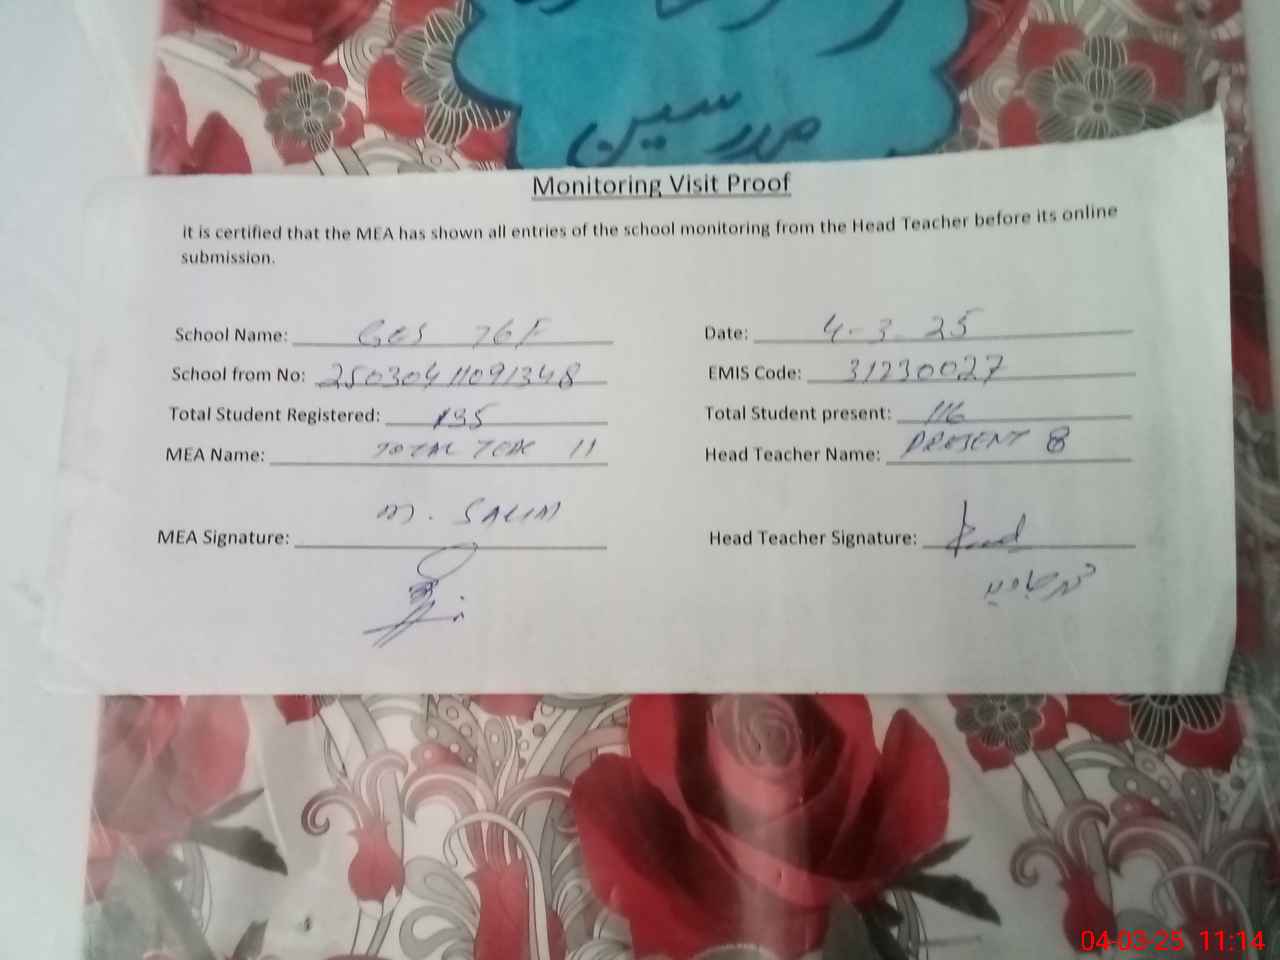 صدر سیرن
Monitoring Visit Proof
it is certified that the MEA has shown all entries of the school monitoring from the Head Teacher before its online
submission.
School Name: GES 76F Date: 4-3-25
School from No: 25030411091348 EMIS Code: 31230027
Total Student Registered: 135 Total Student present: 116
MEA Name: TOTAL TEAC 11 Head Teacher Name: PRESENT 8
M. SALIM
MEA Signature: Head Teacher Signature:
04-03-25 11:14